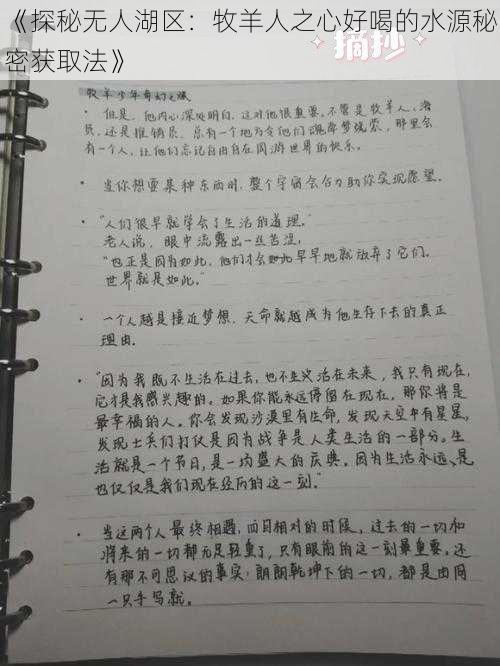 《探秘无人湖区：牧羊人之心好喝的水源秘
密获取法》
摘抄
牧羊少年奇幻之旅
· 但是，他内心深处明白，这对他很重要。不管是牧羊人、海
员，还是推销员，总有一个地方令他们魂牵梦萦，那里会
有一个人，让他们忘记自由自在周游世界的快乐。
· 当你想要某种东西时，整个宇宙会合力助你实现愿望。
· “人们很早就学会了生活的道理。”
老人说，眼中流露出一丝苦涩，
“也正是因为如此，他们才会如此早早地就放弃了它们。
世界就是如此。”
· 一个人越是接近梦想，天命就越成为他生存下去的真正
理由。
· “因为我既不生活在过去，也不生活在未来，我只有现在，
它才是我感兴趣的。如果你能永远停留在现在，那你将是
最幸福的人。你会发现沙漠里有生命，发现天空中有星星，
发现士兵们打仗是因为战争是人类生活的一部分。生
活就是一个节日，是一场盛大的庆典。因为生活永远是，
也仅仅是我们现在经历的这一刻。”
· 当这两个人最终相遇，四目相对的时候，过去的一切和
将来的一切都无足轻重了，只有眼前的这一刻最重要。还
有那不可思议的真实：朗朗乾坤下的一切，都是由同
一只手写就。